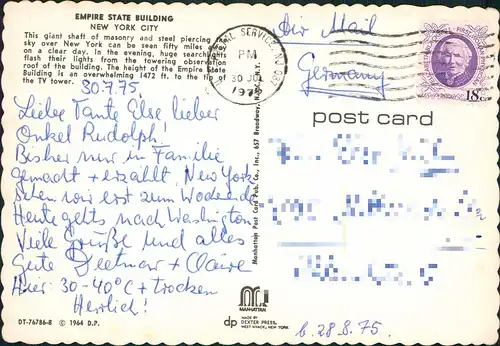 EMPIRE STATE BUILDING
NEW YORK CITY
This giant shaft of masonry and steel piercing the
sky over New York can be seen fifty miles away
on a clear day. In the evening, huge searchlights
flash their lights from the towering observation
roof of the building. The height of the Empire State
Building is an overwhelming 1472 ft. to the tip of
the TV tower.
30.7.75.
Liebe Tante Else lieber
Onkel Rudolph!
Bisher nur in Familie
gemacht + erzählt, New York
sehen wir erst zum Wochenende
Heute gehts nach Washington
Viele Grüße und alles
Gute Dietmar + Claire
Hier: 30-40°C + trocken
Herrlich!
DT-76786-B © 1964 D.P.
Manhattan Post Card Pub. Co., Inc., 657 Broadway, N.Y.
MANHATTAN
dp
MADE BY
DEXTER PRESS
WEST NYACK, NEW YORK
SERVICE, NY
PM
30 JUL
1975
Air Mail
Germany
18c
post card
b. 28.8.75.